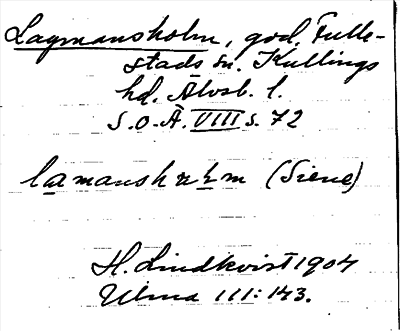 Lagmansholm, god, Fulle-
stads sn. Kullings
hd. Älvsb. l.
S.O.Ä. VIII s. 72
lamansh m (Siene)
H. Lindkvist 1904
Ulma III: 143.